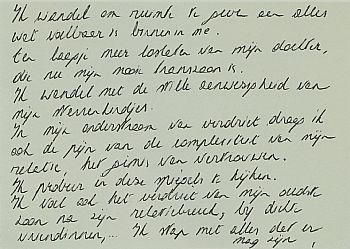 Ik wandel om ruimte te geven aan alles
wat voelbaar is binnen in me.
Een laagje meer loslaten van mijn dochter,
die nu mijn mooie transzoon is.
Ik wandel met de stille aanwezigheid van
mijn sterrenkindjes.
In mijn onderstroom van verdriet draag ik
ook de pijn van de complexiteit van mijn
relatie, het gemis van vertrouwen.
Ik probeer in deze spiegels te kijken.
Ik voel ook het verdriet van mijn oudste
zoon na zijn relatiebreuk, bij dichte
vriendinnen,... Ik stap met alles dat er
mag zijn